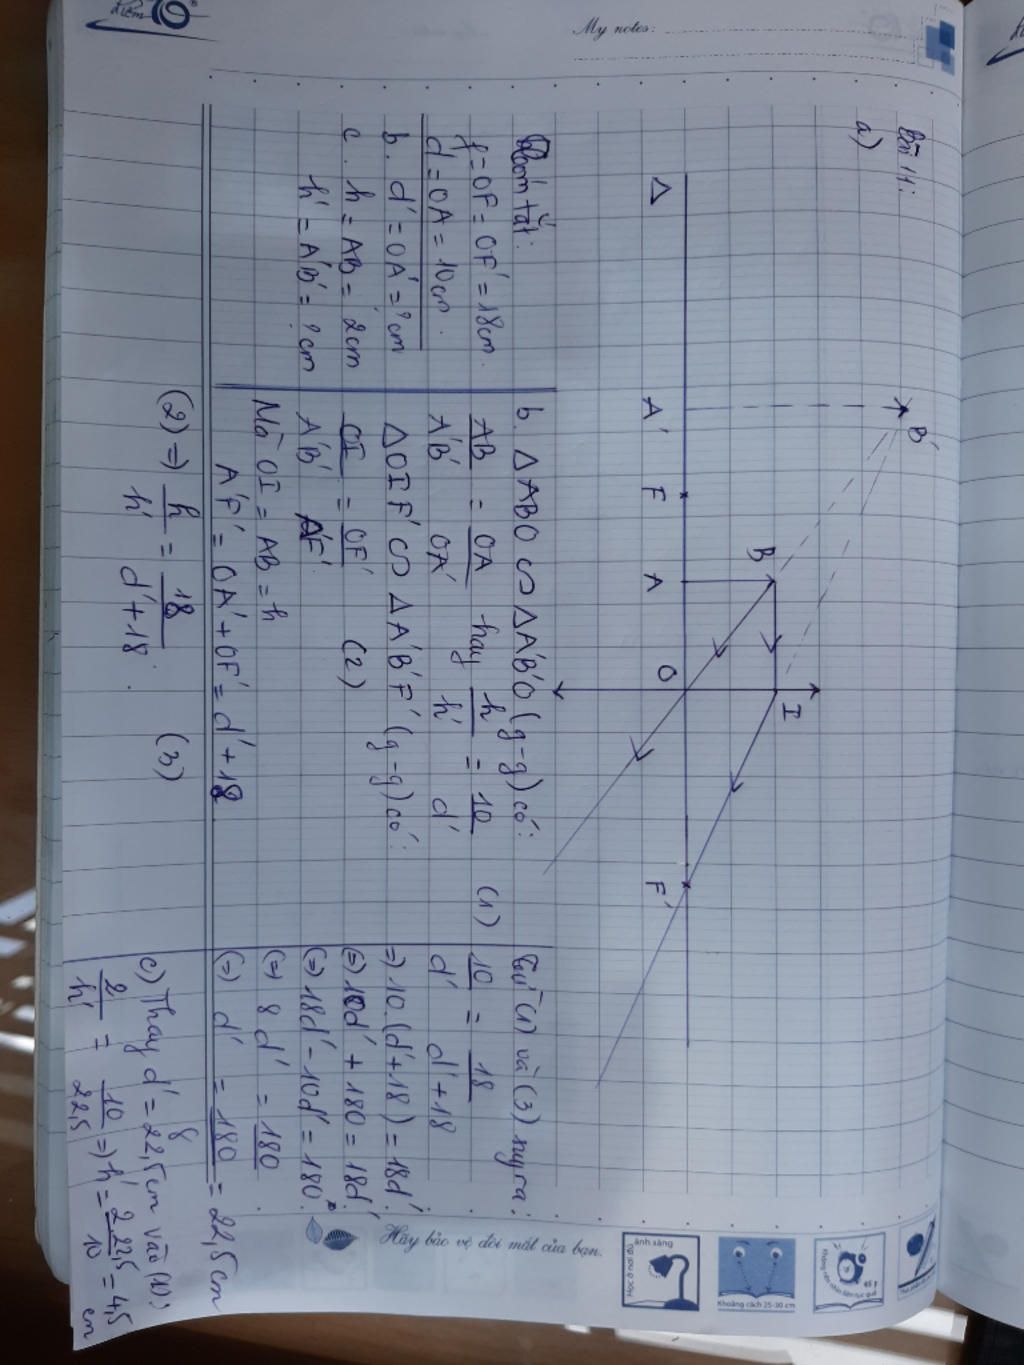 My notes:
Bài 11:
a)
B'
B
I
Δ
A'
F
A
O
F'
Tóm tắt:
f = OF = OF' = 18cm.
d = OA = 10cm.
b. d' = OA' = ? cm
c. h = AB = 2cm
h' = A'B' = ? cm
b. ΔABO ∽ ΔA'B'O (g-g) có:
AB/A'B' = OA/OA' hay h/h' = 10/d' (1)
ΔOIF' ∽ ΔA'B'F' (g-g) có:
OI/A'B' = OF'/A'F' (2)
Mà OI = AB = h
A'F' = OA' + OF' = d' + 18
(2) => h/h' = 18/d'+18. (3)
Từ (1) và (3) suy ra:
10/d' = 18/d'+18
=> 10.(d'+18) = 18d'.
(=) 10d' + 180 = 18d'.
(=) 18d' - 10d' = 180.
(=) 8d' = 180
(=) d' = 180/8 = 22,5cm
c) Thay d' = 22,5cm vào (1):
2/h' = 10/22,5 => h' = 2.22,5/10 = 4,5 cm
Hãy bảo vệ đôi mắt của bạn.
Học ở nơi đủ ánh sáng
Khoảng cách 25-30 cm